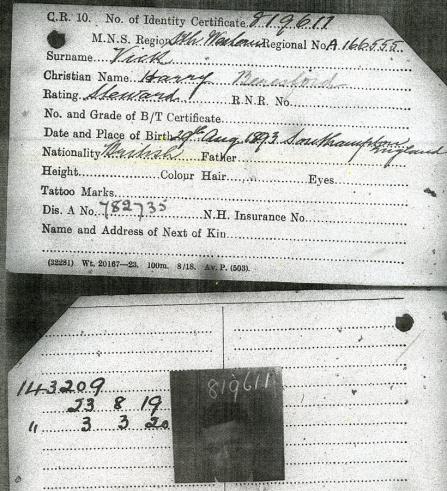 C.R. 10. No. of Identity Certificate. 819611
M.N.S. Region Regional No. A 166555
Surname Vick
Christian Name Harry Beresford
Rating Steward R.N.R. No.
No. and Grade of B/T Certificate
Date and Place of Birth 29th Aug. 1893 Southampton England
Nationality British Father
Height Colour Hair Eyes
Tattoo Marks
Dis. A No. 782735 N.H. Insurance No.
Name and Address of Next of Kin
(32281) Wt. 20167—23. 100m. 8/18. Av. P. (503).
819611
143209
23 8 19
" 3 3 20